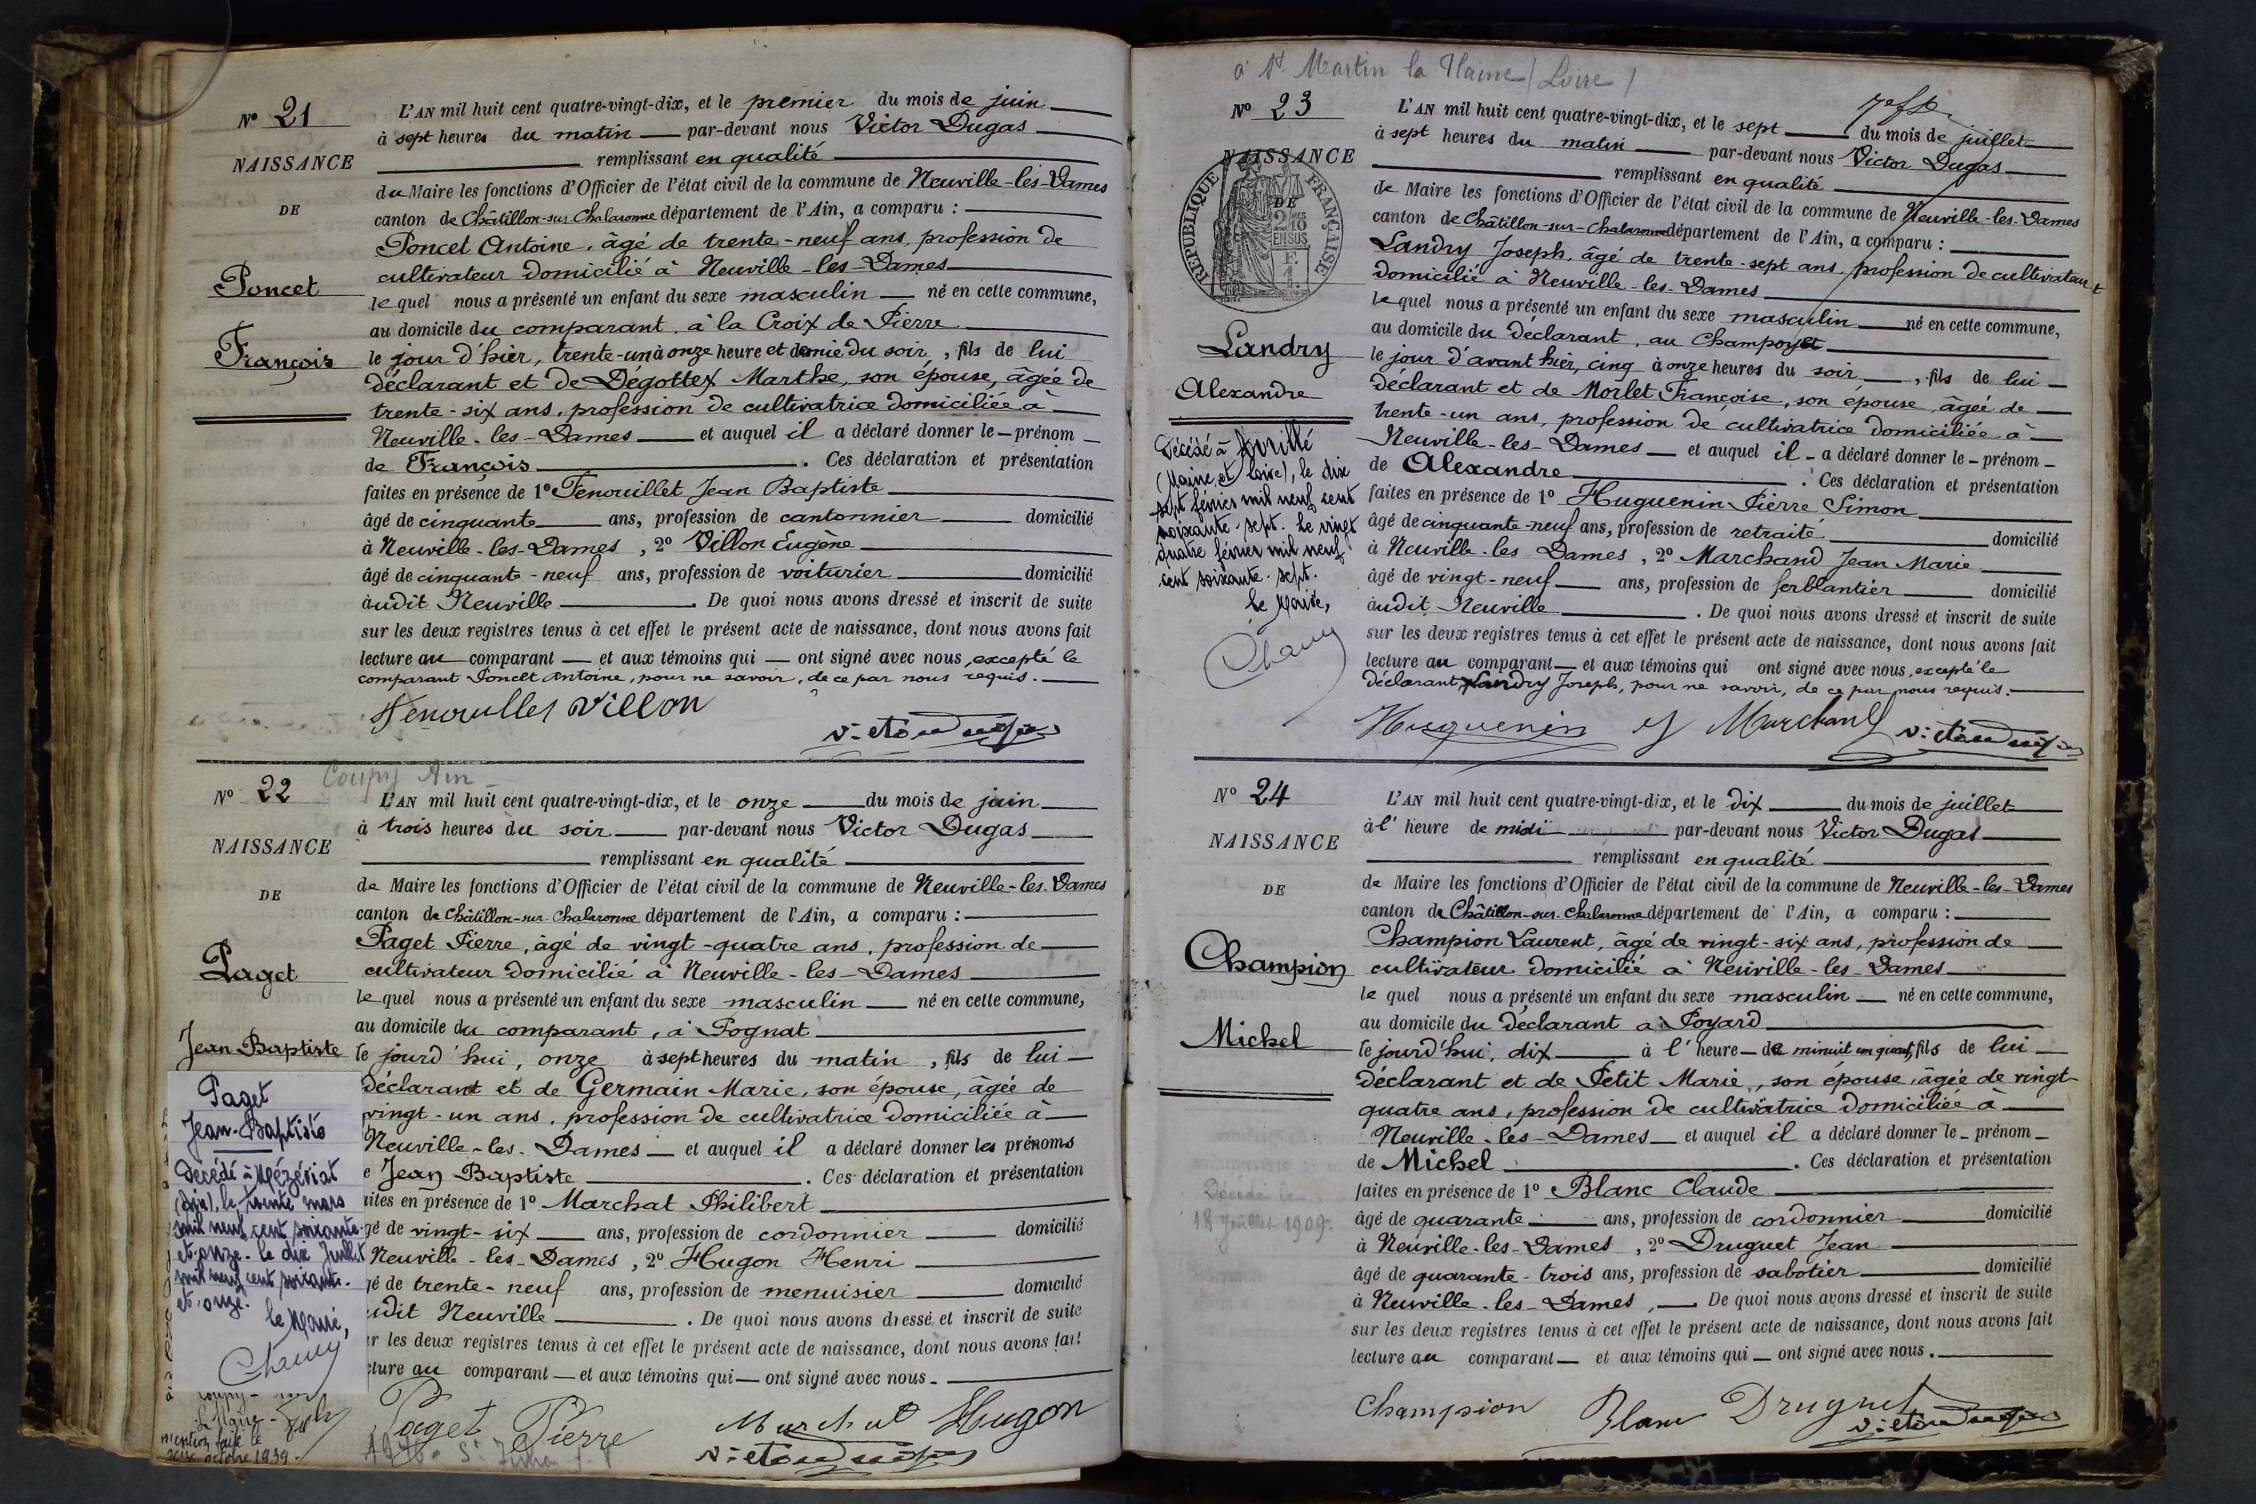 Nº 21
NAISSANCE
DE
Poncet
François
L'AN mil huit cent quatre-vingt-dix, et le premier du mois de juin
à sept heures du matin par-devant nous Victor Dugas
remplissant en qualité
du Maire les fonctions d'Officier de l'état civil de la commune de Neuville-les-Dames
canton de Châtillon-sur-Chalaronne département de l'Ain, a comparu :
Poncet Antoine, âgé de trente-neuf ans, profession de
cultivateur domicilié à Neuville-les-Dames
lequel nous a présenté un enfant du sexe masculin né en cette commune,
au domicile du comparant, à la Croix de Pierre
le jour d'hier, trente-un à onze heure et demie du soir, fils de lui
déclarant et de Dégottex Marthe, son épouse, âgée de
trente-six ans, profession de cultivatrice domiciliée à
Neuville-les-Dames et auquel il a déclaré donner le prénom
de François. Ces déclaration et présentation
faites en présence de 1º Fenouillet Jean Baptiste
âgé de cinquante ans, profession de cantonnier domicilié
à Neuville-les-Dames, 2º Villon Eugène
âgé de cinquante-neuf ans, profession de voiturier domicilié
audit Neuville. De quoi nous avons dressé et inscrit de suite
sur les deux registres tenus à cet effet le présent acte de naissance, dont nous avons fait
lecture au comparant et aux témoins qui ont signé avec nous, excepté le
comparant Poncet Antoine, pour ne savoir, de ce par nous requis.
Fenouillet Villon
Coupy Ain
Nº 22
NAISSANCE
DE
Paget
Jean Baptiste
L'AN mil huit cent quatre-vingt-dix, et le onze du mois de juin
à trois heures du soir par-devant nous Victor Dugas
remplissant en qualité
de Maire les fonctions d'Officier de l'état civil de la commune de Neuville-les-Dames
canton de Châtillon-sur-Chalaronne département de l'Ain, a comparu :
Paget Pierre, âgé de vingt-quatre ans, profession de
cultivateur domicilié à Neuville-les-Dames
lequel nous a présenté un enfant du sexe masculin né en cette commune,
au domicile du comparant, à Pognat
le jourd'hui, onze à sept heures du matin, fils de lui
déclarant et de Germain Marie, son épouse, âgée de
vingt-un ans, profession de cultivatrice domiciliée à
Neuville-les-Dames et auquel il a déclaré donner les prénoms
e Jean Baptiste. Ces déclaration et présentation
aites en présence de 1º Marchat Philibert
gé de vingt-six ans, profession de cordonnier domicilié
Neuville-les-Dames, 2º Hugon Henri
gé de trente-neuf ans, profession de menuisier domicilié
udit Neuville. De quoi nous avons dressé et inscrit de suite
r les deux registres tenus à cet effet le présent acte de naissance, dont nous avons fait
cture au comparant et aux témoins qui ont signé avec nous.
Paget Pierre Marchat Hugon
Paget
Jean-Baptiste
Décédé à Mézériat
(Ain), le trente mars
mil neuf cent soixante
et onze. le dix Juillet
mil neuf cent soixante
et onze.
le Maire,
Chany
Le Maire
mention faite le
octobre 1939
à St Martin la Plaine (Loire)
Nº 23
NAISSANCE
DE
RÉPUBLIQUE FRANÇAISE
2 MES
10
EN SUS
Landry
Alexandre
Décédé à Avrillé
(Maine et Loire), le dix
sept février mil neuf cent
soixante-sept. Le vingt
quatre février mil neuf
cent soixante-sept.
Le Maire,
Chany
L'AN mil huit cent quatre-vingt-dix, et le sept du mois de juillet
à sept heures du matin par-devant nous Victor Dugas
remplissant en qualité
de Maire les fonctions d'Officier de l'état civil de la commune de Neuville-les-Dames
canton de Châtillon-sur-Chalaronne département de l'Ain, a comparu :
Landry Joseph, âgé de trente-sept ans, profession de cultivateur
domicilié à Neuville-les-Dames
lequel nous a présenté un enfant du sexe masculin né en cette commune,
au domicile du déclarant, au Champoyet
le jour d'avant hier, cinq à onze heures du soir, fils de lui
déclarant et de Morlet Françoise, son épouse, âgée de
trente-un ans, profession de cultivatrice domiciliée à
Neuville-les-Dames et auquel il a déclaré donner le prénom
de Alexandre. Ces déclaration et présentation
faites en présence de 1º Huguenin Pierre Simon
âgé de cinquante-neuf ans, profession de retraité domicilié
à Neuville-les Dames, 2º Marchand Jean Marie
âgé de vingt-neuf ans, profession de ferblantier domicilié
audit Neuville. De quoi nous avons dressé et inscrit de suite
sur les deux registres tenus à cet effet le présent acte de naissance, dont nous avons fait
lecture au comparant et aux témoins qui ont signé avec nous, excepté le
déclarant Landry Joseph, pour ne savoir, de ce par nous requis.
Huguenin J Marchand
Nº 24
NAISSANCE
DE
Champion
Michel
Décédé le
18 Juillet 1909.
L'AN mil huit cent quatre-vingt-dix, et le dix du mois de juillet
à l'heure de midi par-devant nous Victor Dugas
remplissant en qualité
de Maire les fonctions d'Officier de l'état civil de la commune de Neuville-les-Dames
canton de Châtillon-sur-Chalaronne département de l'Ain, a comparu :
Champion Laurent, âgé de vingt-six ans, profession de
cultivateur domicilié à Neuville-les-Dames
lequel nous a présenté un enfant du sexe masculin né en cette commune,
au domicile du déclarant à Poyard
le jourd'hui, dix à l'heure de minuit un quart, fils de lui
déclarant et de Petit Marie, son épouse, âgée de vingt
quatre ans, profession de cultivatrice domiciliée à
Neuville-les-Dames et auquel il a déclaré donner le prénom
de Michel. Ces déclaration et présentation
faites en présence de 1º Blanc Claude
âgé de quarante ans, profession de cordonnier domicilié
à Neuville-les-Dames, 2º Druguet Jean
âgé de quarante-trois ans, profession de sabotier domicilié
à Neuville-les-Dames, De quoi nous avons dressé et inscrit de suite
sur les deux registres tenus à cet effet le présent acte de naissance, dont nous avons fait
lecture au comparant et aux témoins qui ont signé avec nous.
Champion Blanc Druguet